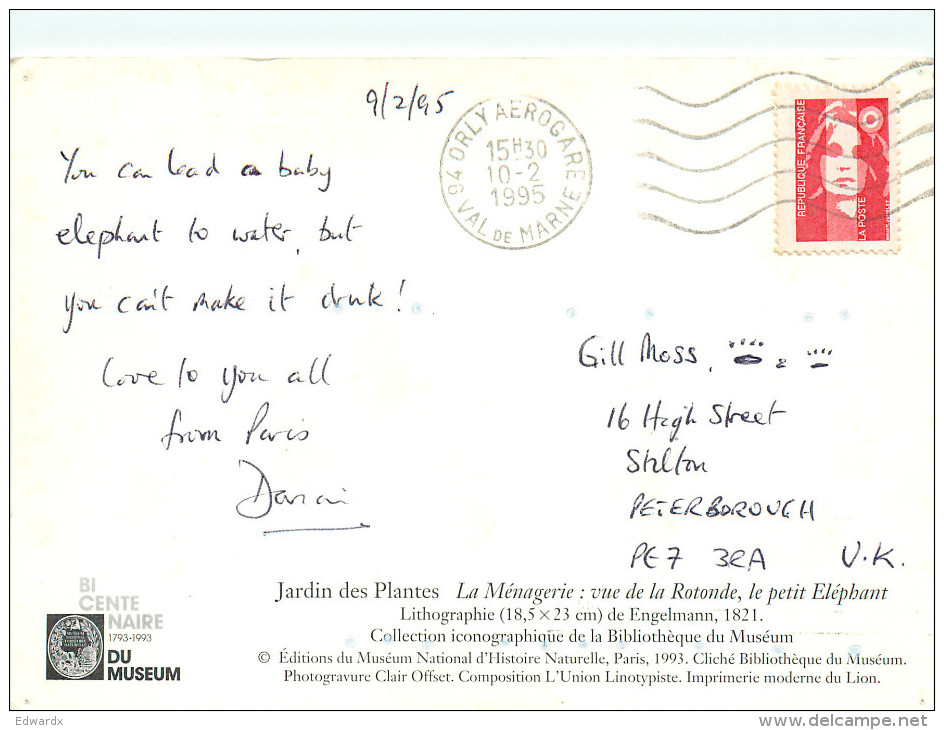 9/2/95
You can lead a baby
elephant to water, but
you can't make it drink!
Love to you all
from Paris
94 ORLY AEROGARE
15H30
10-2
1995
VAL DE MARNE
REPUBLIQUE FRANÇAISE
LA POSTE
Gill Moss,
16 High Street
Stilton
PETERBOROUGH
PE7 3RA U.K.
BI
CENTE
NAIRE
1793-1993
DU
MUSEUM
Jardin des Plantes La Ménagerie : vue de la Rotonde, le petit Eléphant
Lithographie (18,5 × 23 cm) de Engelmann, 1821.
Collection iconographique de la Bibliothèque du Muséum
© Éditions du Muséum National d'Histoire Naturelle, Paris, 1993. Cliché Bibliothèque du Muséum.
Photogravure Clair Offset. Composition L'Union Linotypiste. Imprimerie moderne du Lion.
Edwardx
delcampe.net